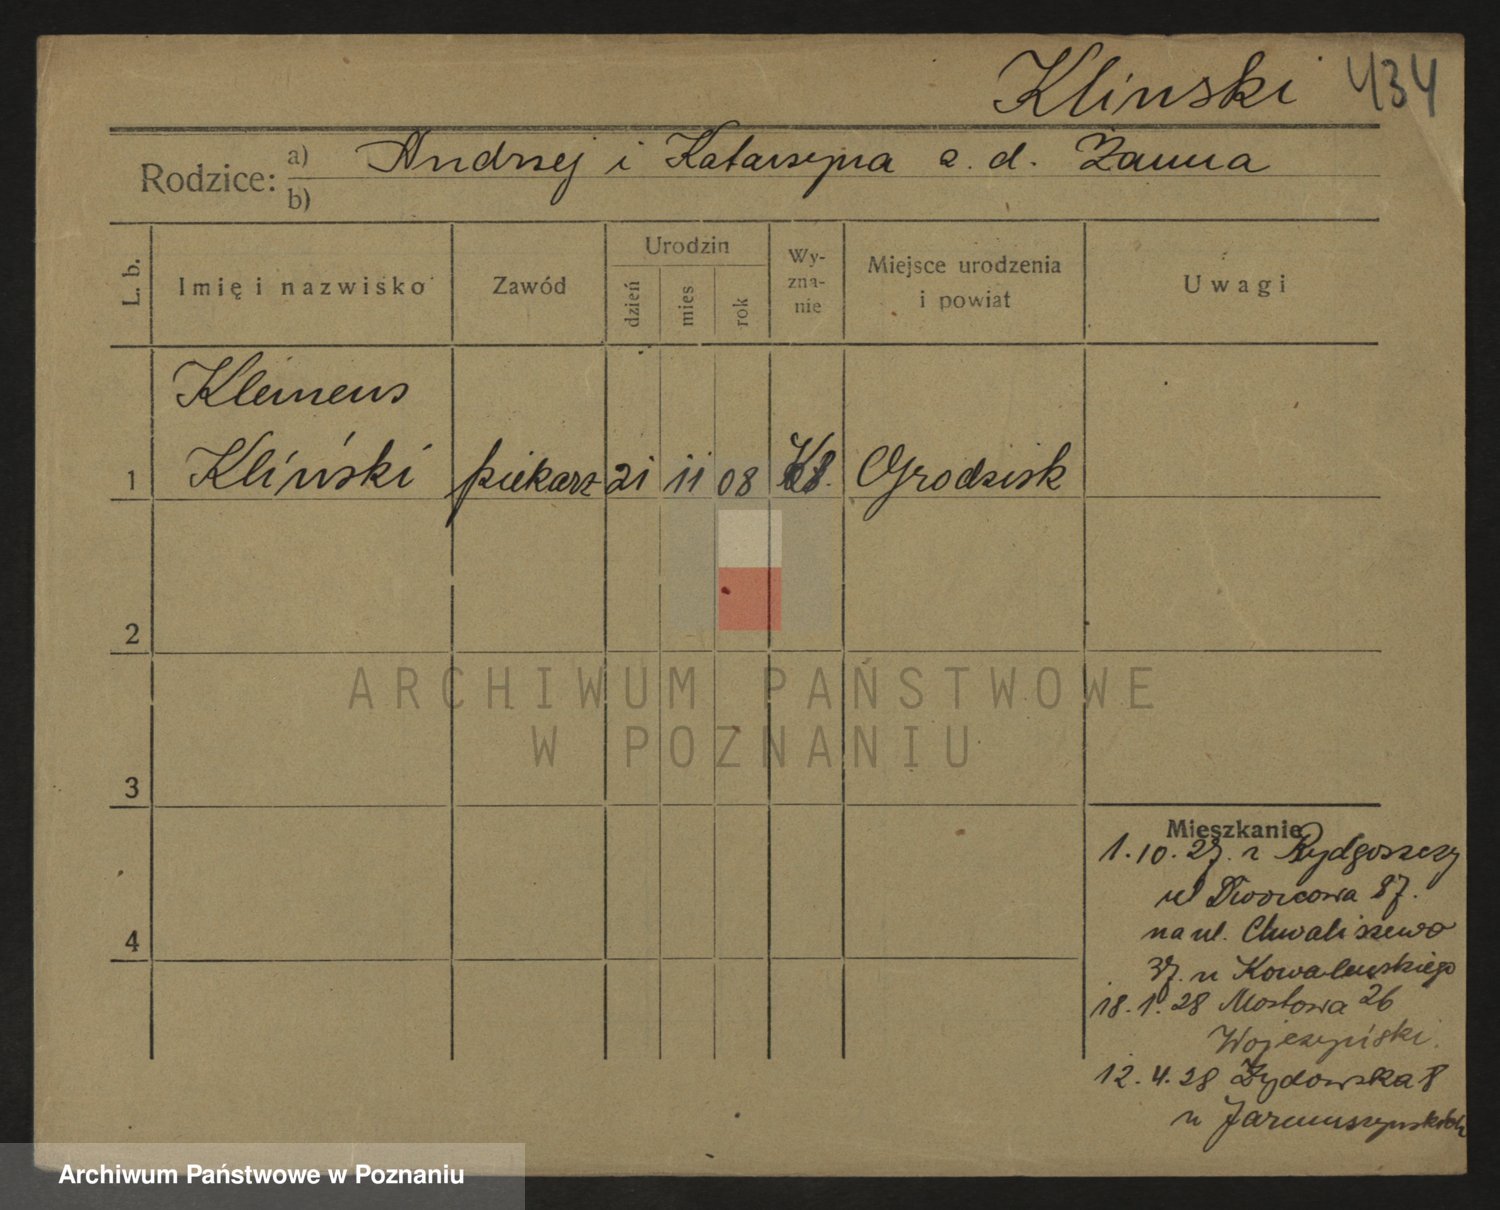 Klinski 434
Rodzice: a) Andrzej i Katarzyna z. d. Zauua
b)
L. b. Imię i nazwisko Zawód Urodzin dzień mies rok Wy-zna-nie Miejsce urodzenia i powiat Uwagi
Klemens
1 Kliński piekarz 21 11 08 Kł. Grodzisk
2
ARCHIWUM PAŃSTWOWE
W POZNANIU
3
Mieszkanie
1.10.27. z Bydgoszczy
ul Dworcowa 87.
na ul. Chwaliszewo
37. u Kowalewskiego
4
18.1.28 Mostowa 26
Wojczyński.
12.4.28 Żydowska 8
u Jarmuszyńskich
Archiwum Państwowe w Poznaniu